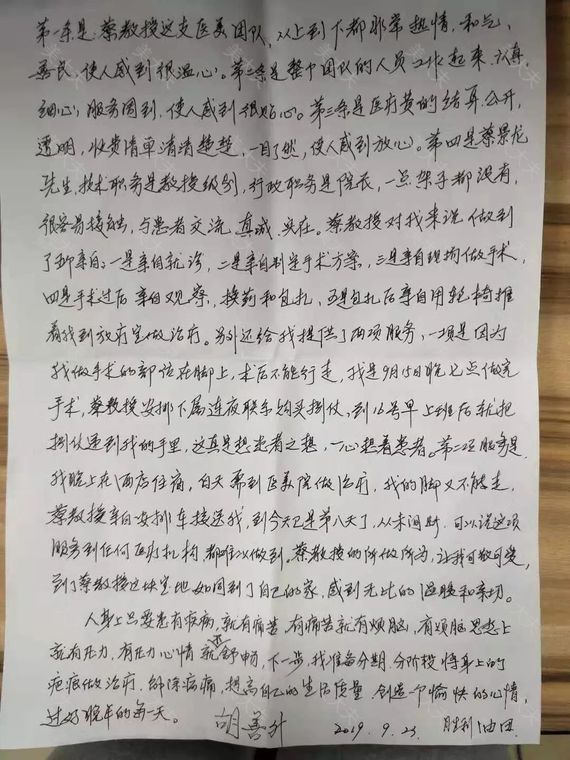 第一条是:蔡教授这支医美团队,从上到下都非常热情、和气、
善良、使人感到很温心。第二条是整个团队的人员工作起来、认真、
细心,服务周到,使人感到很贴心。第三条是医疗费的结算公开,
透明,收费清单清清楚楚,一目了然,使人感到放心。第四是蔡景龙
先生,技术职务是教授级别,行政职务是院长,一点架子都没有,
很容易接触,与患者交流、真诚、实在。蔡教授对我来说做到
了五个亲自:一是亲自就诊,二是亲自制定手术方案,三是亲自现场做手术,
四是手术过后亲自观察,换药和包扎,五是包扎后亲自用轮椅推
着我到放疗室做治疗。另外还给我提供了两项服务,一项是因为
我做手术的部位在脚上,术后不能行走,我是9月15日晚七点做完
手术,蔡教授安排下属连夜联系购买拐杖,到16号早上班后就把
拐杖送到我的手里,这真是想患者之想,一心想着患者。第二项服务是
我晚上在酒店住宿,白天需到医美院做治疗,我的脚又不能走,
蔡教授亲自安排车接送我,到今天已是第八天了,从未间断,可以说这项
服务到任何医疗机构都难以做到。蔡教授的所做所为,让我可敬可爱,
到了蔡教授这块宝地如同到了自己的家,感到无比的温暖和亲切。
人身上只要患有疾病,就有痛苦,有痛苦就有烦脑,有烦脑思想上
就有压力,有压力心情就不舒畅,下一步,我准备分期、分阶段将身上的
疤痕做治疗,解除病痛,提高自己的生活质量,创造一个愉快的心情,
过好晚年的每一天。
胡善升 2019.9.23 胜利油田